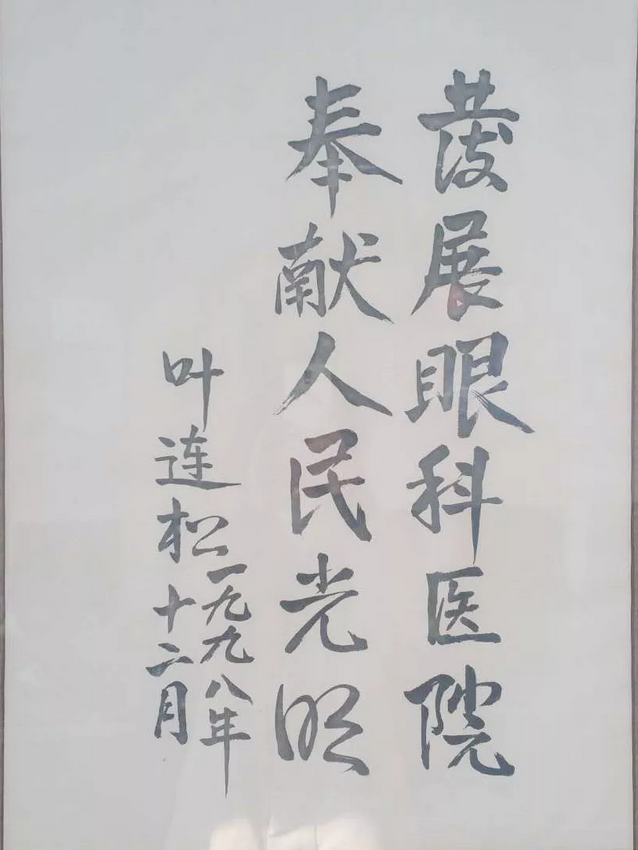 发展眼科医院
奉献人民光明
叶连松
一九九八年
十二月